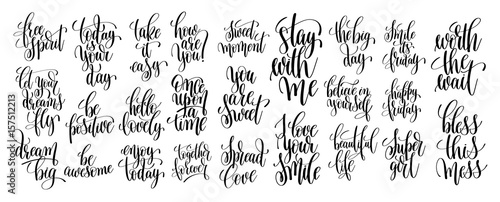 free
spirit
let your
dreams
fly
dream
big
today
is
your
day
be
positive
be
awesome
take
it
easy
hello
lovely
enjoy
today
how
are
you?
once
upon
a
time
together
forever
Sweet
moment
you
are
sweet
Spread
love
stay
with
me
I love
your
smile
the
big
day
believe in
yourself
beautiful
life
Smile
it's
friday
happy
friday
Super
girl
worth
the
wait
bless
this
mess
Adobe Stock | #157512213